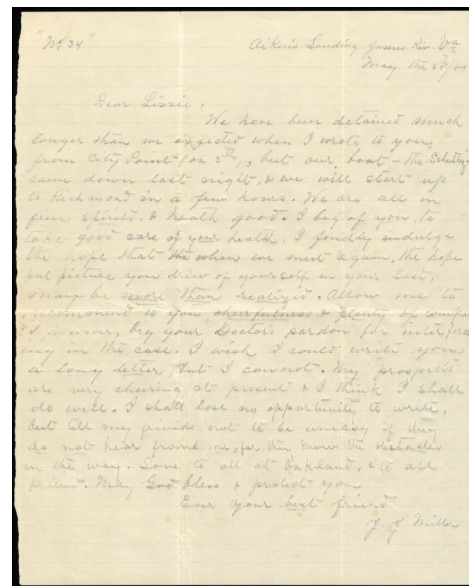 "No 34"
Aiken's Landing James Riv. Va
May the 8th/64
Dear Lizzie,
We have been detained much
longer than we expected when I wrote to you
from City Point (on 5th), but our boat - the Schultz -
came down last night, & we will start up
to Richmond in a few hours. We are all in
fine spirits, & health good. I beg of you to
take good care of your health, I fondly indulge
the hope that the when we meet again, the hope
ful picture you drew of yourself in your last,
may be more than realized. Allow me to
recommend to you, cheerfulness & plenty of company
I, however, beg your Doctor's pardon for interfere
ing in the case. I wish I could write you
a long letter, but I cannot. My prospects
are very cheering at present & I think I shall
do well. I shall lose no opportunity to write,
but tell my friends not to be uneasy if they
do not hear from me, for they know the obstacles
in the way. Love to all at Oakland, & to all
friend. May God bless & protect you
Ever your best friend
J. J. Miller